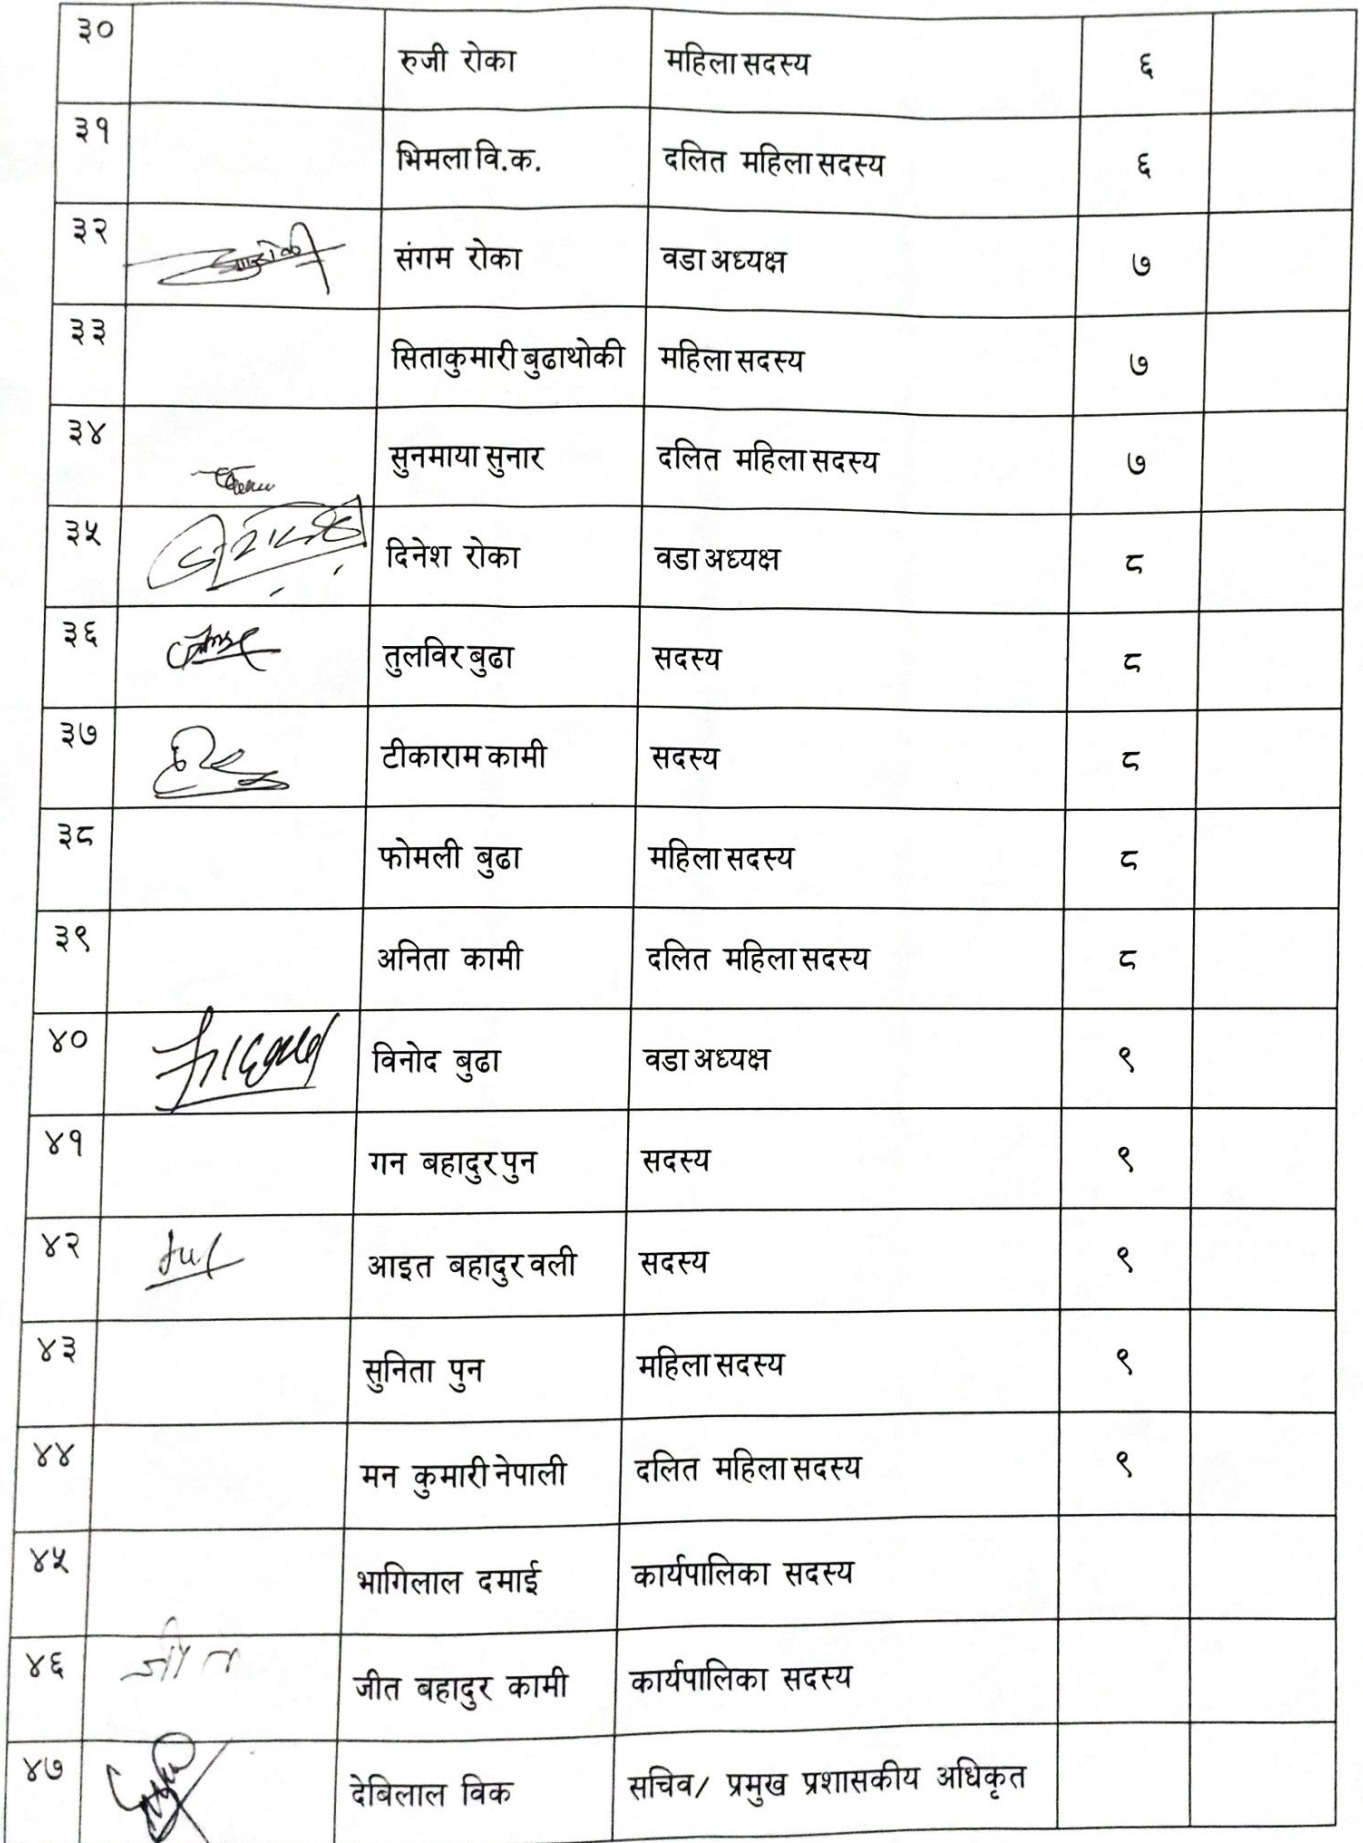 ३० रुजी रोका महिला सदस्य ६
३१ भिमला वि.क. दलित महिला सदस्य ६
३२ संगम रोका वडा अध्यक्ष ७
३३ सिताकुमारी बुढाथोकी महिला सदस्य ७
३४ सुनमाया सुनार दलित महिला सदस्य ७
३५ दिनेश रोका वडा अध्यक्ष ८
३६ तुलविर बुढा सदस्य ८
३७ टीकाराम कामी सदस्य ८
३८ फोमली बुढा महिला सदस्य ८
३९ अनिता कामी दलित महिला सदस्य ८
४० विनोद बुढा वडा अध्यक्ष ९
४१ गन बहादुर पुन सदस्य ९
४२ आइत बहादुर वली सदस्य ९
४३ सुनिता पुन महिला सदस्य ९
४४ मन कुमारी नेपाली दलित महिला सदस्य ९
४५ भागिलाल दमाई कार्यपालिका सदस्य
४६ जीत जीत बहादुर कामी कार्यपालिका सदस्य
४७ देबिलाल विक सचिव/ प्रमुख प्रशासकीय अधिकृत